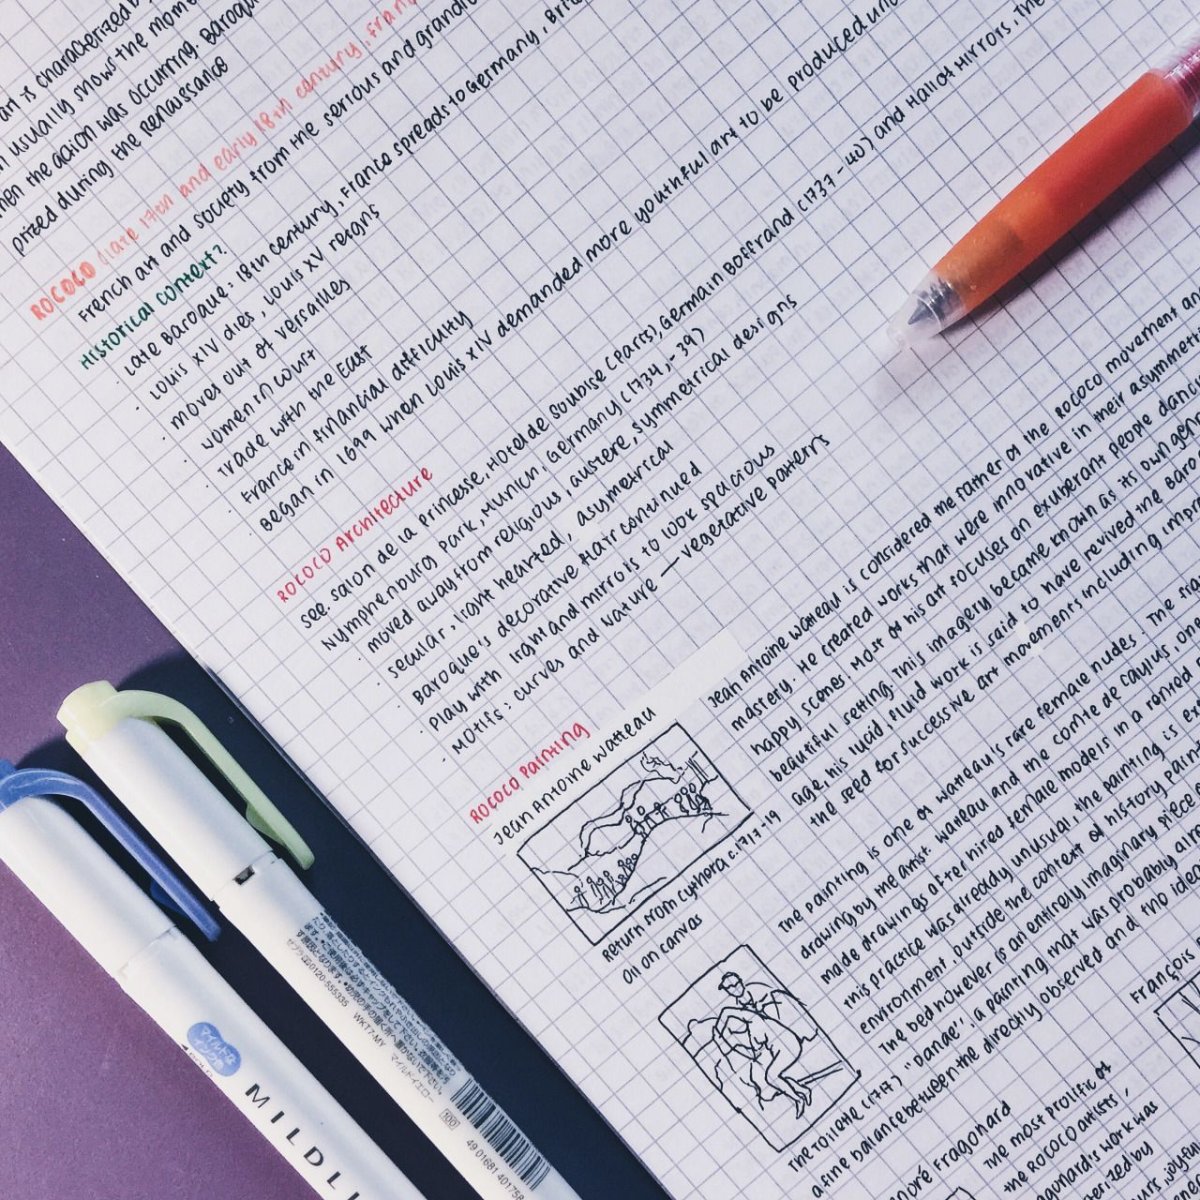 art is characterized by
usually shows the mome
when the action was occurring. Baroqu
prized during the Renaissance
ROCOCO (late 17th and early 18th century, Fran
French art and society from the serious and grandio
Historical Context?
Late Baroque: 18th century, France spreads to Germany, Brit
Louis XIV dies, Louis XV reigns
moves out of Versailles
women in court
Trade with the East
France in financial difficulty
Began in 1699 when Louis XIV demanded more youthful art to be produced und
ROCOCO Architecture
see. Salon de la Princesse. Hotel de Soubise (Paris), Germain Boffrand (1737-40) and Hall of Mirrors, The
Nymphenburg Park, Munich, Germany (1734,-39)
moved away from religious, austere, symmetrical designs
secular, light hearted, asymetrical
Baroque's decorative flair continued
Play with light and mirrors to look spacious
Motifs: curves and nature — vegetative patterns
ROCOCO Painting
Jean Antoine Watteau
Return from Cythera c.1717-19
Oil on canvas
Jean Antoine Watteau is considered the father of the Rococo movement an
mastery. He created works that were innovative in their asymmetr
happy scenes. Most of his art focuses on exuberant people dancin
beautiful setting. This imagery became known as its own gen
age. his lucid, fluid work is said to have revived the Baro
the seed for successive art movements including imp
The painting is one of Watteau's rare female nudes. The
drawing by the artist. Watteau and the Comte de Caylus,
made drawings after hired female models in a rented
this practice was already unusual, the painting is
environment, outside the context of history pain
The bed however is an entirely imaginary piece
The Toilette (1717) "Danae", a painting that was probably
a fine balance between the directly observed and the ide
Fragonard
The most prolific of
the ROCOCO artists,
Fragonard's work was
ted by
joyfu
François
MILDLI
マイルドな
0120-555335
WKT7-MY マイルドイエロー
100
49 01681 401758